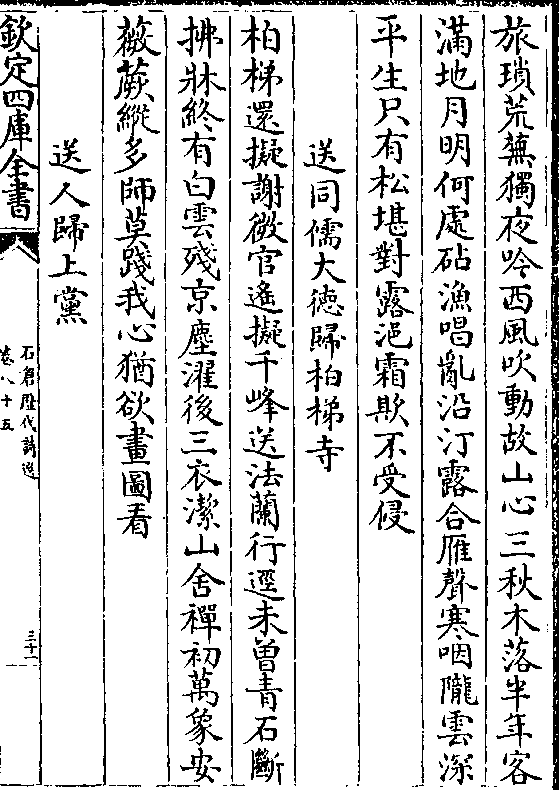 旅瑣荒蕪獨夜吟西風吹動故山心三秋木落半年客
滿地月明何處砧漁唱亂沿汀露合雁聲寒咽隴雲深
平生只有松堪對露浥霜欺不受侵
送同儒大徳歸柏梯寺
柏梯還擬謝微官遙擬千峰送法蘭行逕未曾青石斷
拂牀終有白雲殘京塵濯後三衣潔山舍禪初萬象安
薇蕨縱多師莫踐我心猶欲畫圖看
送人歸上黨
欽定四庫全書
石倉歴代詩選
卷八十五
三十一